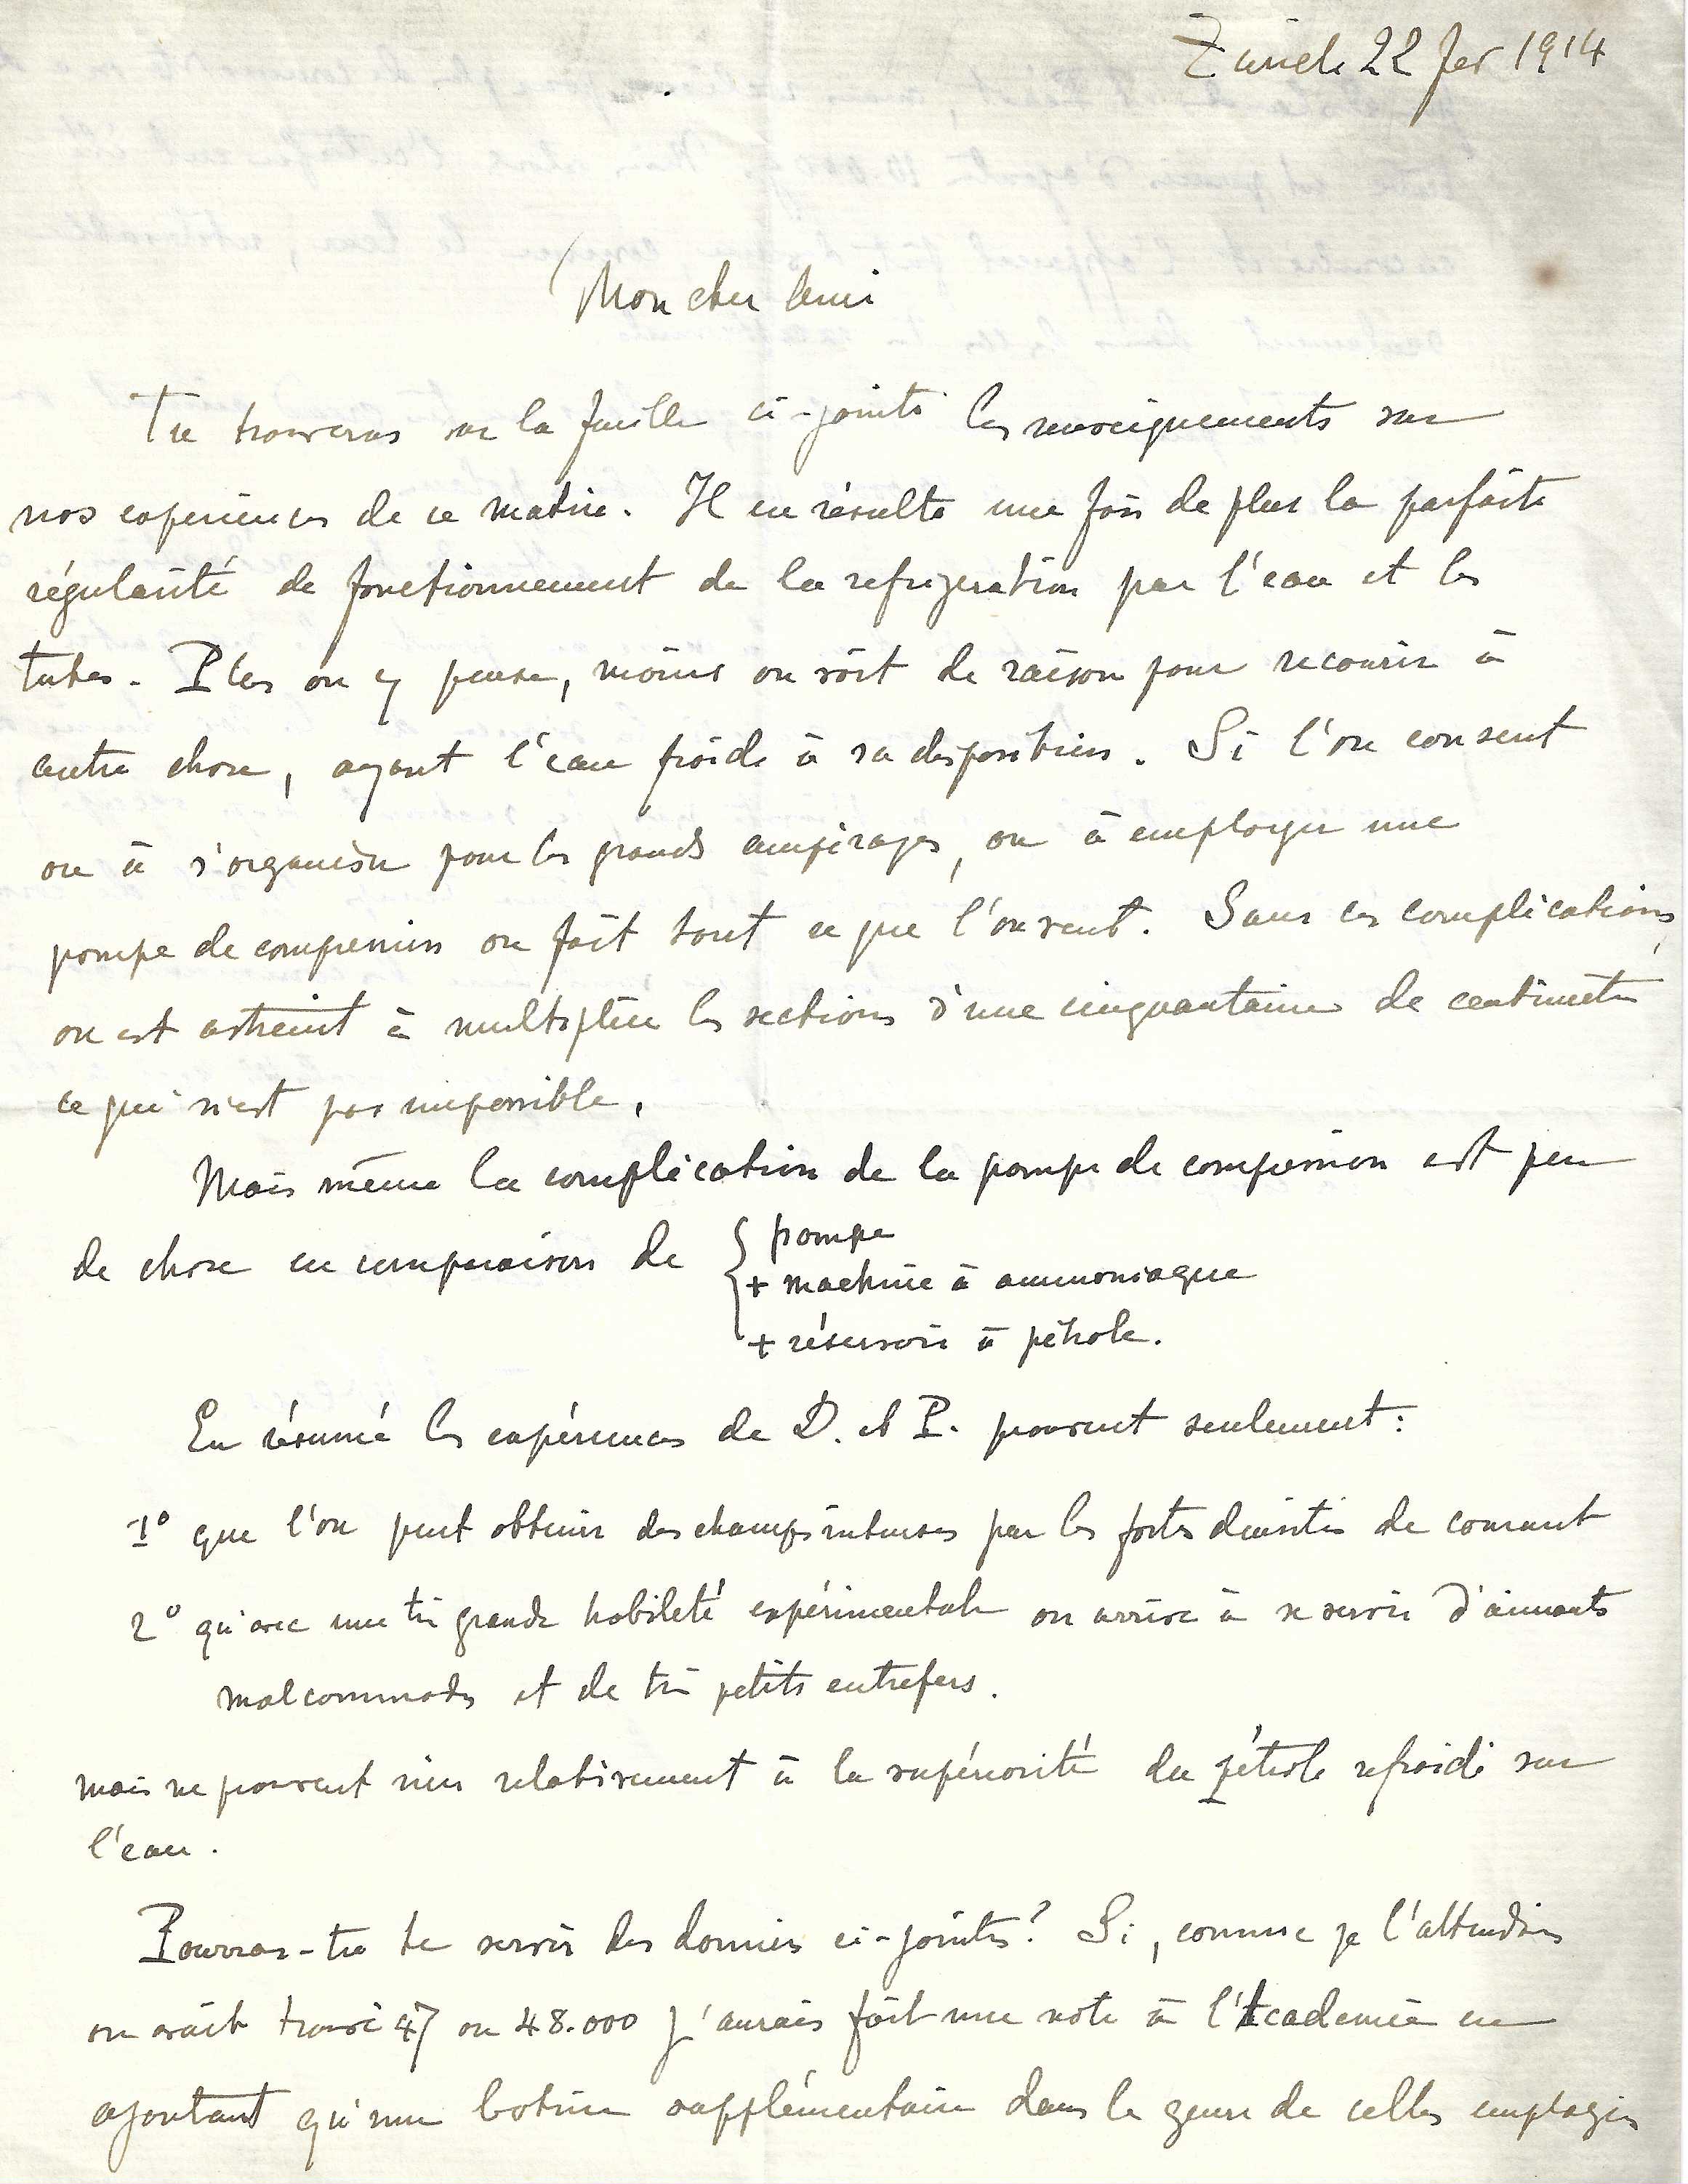 Zürich 22 fev 1914
Mon cher ami
Tu trouveras sur la feuille ci-jointe les renseignements sur
nos expériences de ce matin. Il en résulte une fois de plus la parfaite
régularité de fonctionnement de la refrigeration par l'eau et les
tubes. Plus on y pense, moins on voit de raison pour recourir à
autre chose, ayant l'eau froide à sa disposition. Si l'on consent
ou à s'organiser pour les grands ampérages, ou à employer une
pompe de compression on fait tout ce que l'on veut. Sans ces complications,
on est astreint à multiplier les sections d'une cinquantaine de centimètres
ce qui n'est pas impossible.
Mais même la complication de la pompe de compression est peu
de chose en comparaison de { pompe
+ machine à ammoniaque
+ réservoir à pétrole.
En résumé les expériences de D. et P. prouvent seulement :
1° que l'on peut obtenir des champs intenses par les fortes densités de courant
2° qu'avec une très grande habileté expérimentale on arrive à se servir d'aimants
malcommodes et de très petits entrefers.
mais ne prouvent rien relativement à la supériorité du pétrole refroidi sur
l'eau.
Pourras-tu te servir des données ci-jointes ? Si, comme je l'attendais
on avait trouvé 47 ou 48.000 j'aurais fait une note à l'Academie en
ajoutant qu'une bobine supplémentaire dans le genre de celles employées